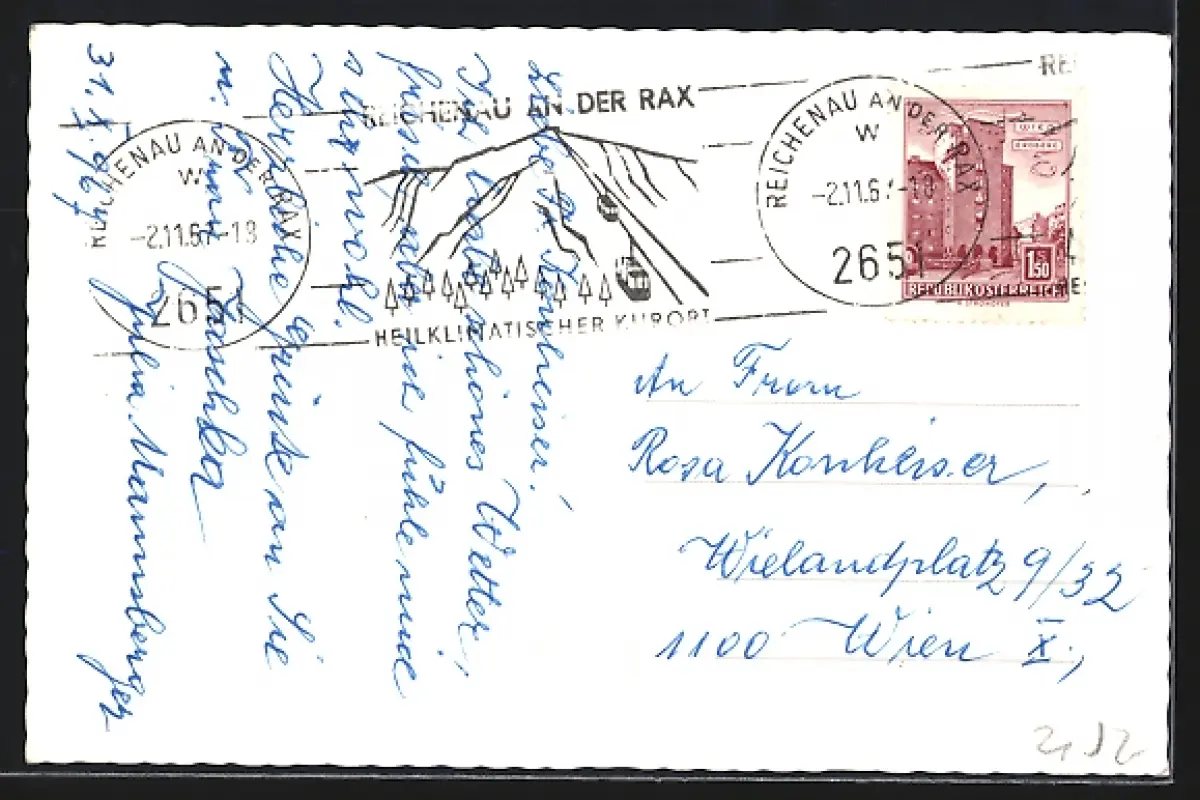 REICHENAU AN DER RAX
W
-2.11.67-18
2651
REICHENAU AN DER RAX
HEILKLIMATISCHER KURORT
REICHENAU AN DER RAX
W
-2.11.67-18
2651
WIEN
ERDBERG
1.50
REPUBLIK ÖSTERREICH
An Frau
Rosa Konheiser,
Wielandplatz 9/32
1100 Wien X.,
Liebe Fr. Konheiser!
Ich habe schönes Wetter,
ich fühle mich
sehr wohl.
Herzliche Grüße an Sie
u.
Julia Mannsberger
31. X. 967